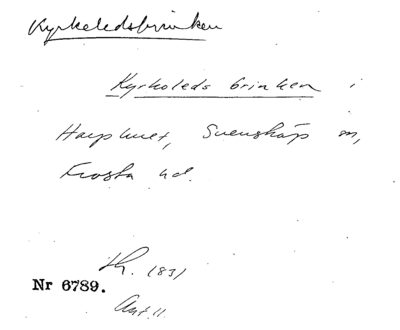 Kyrkeledsbrinken
Kyrkoleds brinken i
Harphult, Svenskåp sn,
Frosta hd.
Lh. 1831
Nr 6789.
Akt 11.